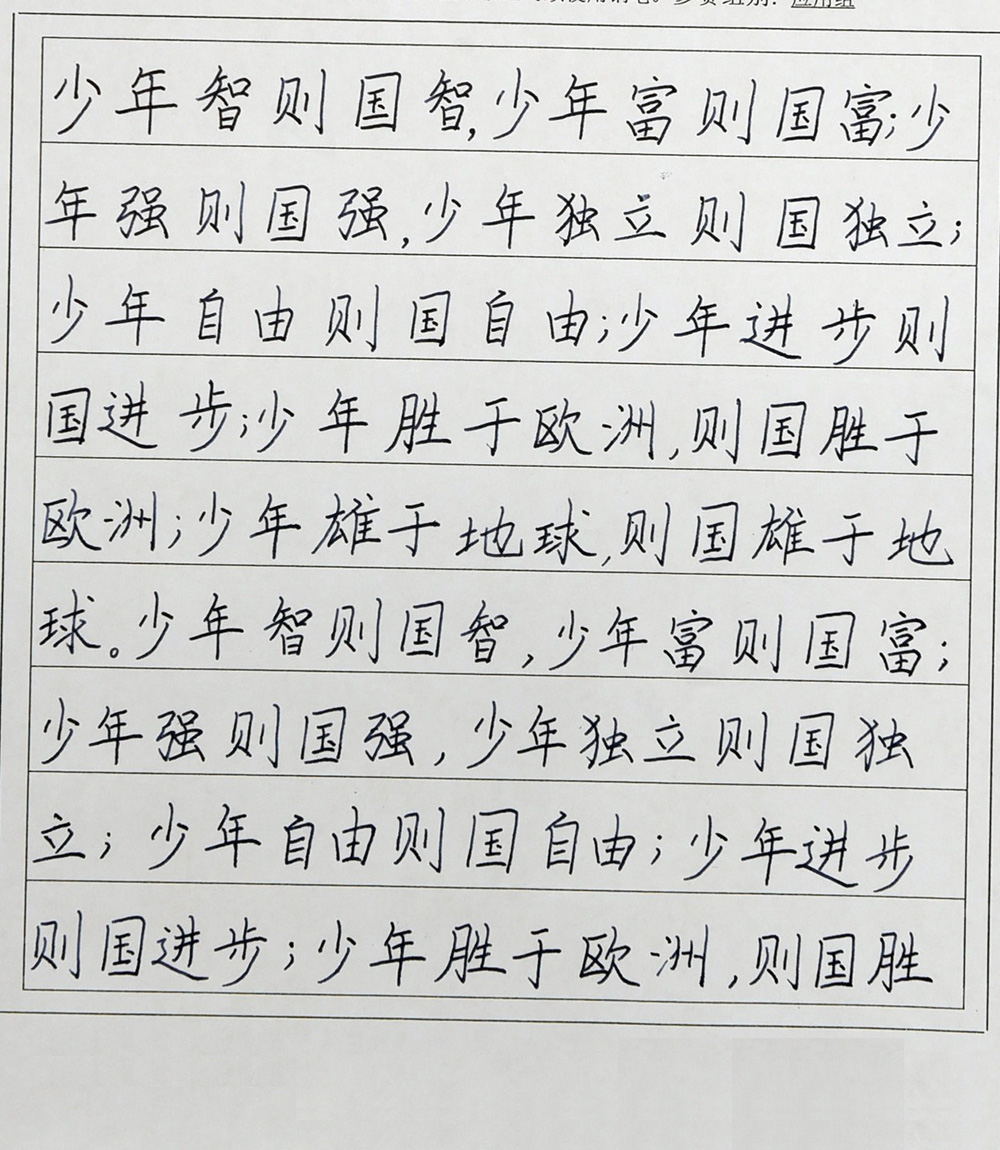 参赛组别：应用组
少年智则国智,少年富则国富;少
年强则国强,少年独立则国独立;
少年自由则国自由;少年进步则
国进步;少年胜于欧洲,则国胜于
欧洲;少年雄于地球,则国雄于地
球。少年智则国智,少年富则国富;
少年强则国强,少年独立则国独
立;少年自由则国自由;少年进步
则国进步;少年胜于欧洲,则国胜